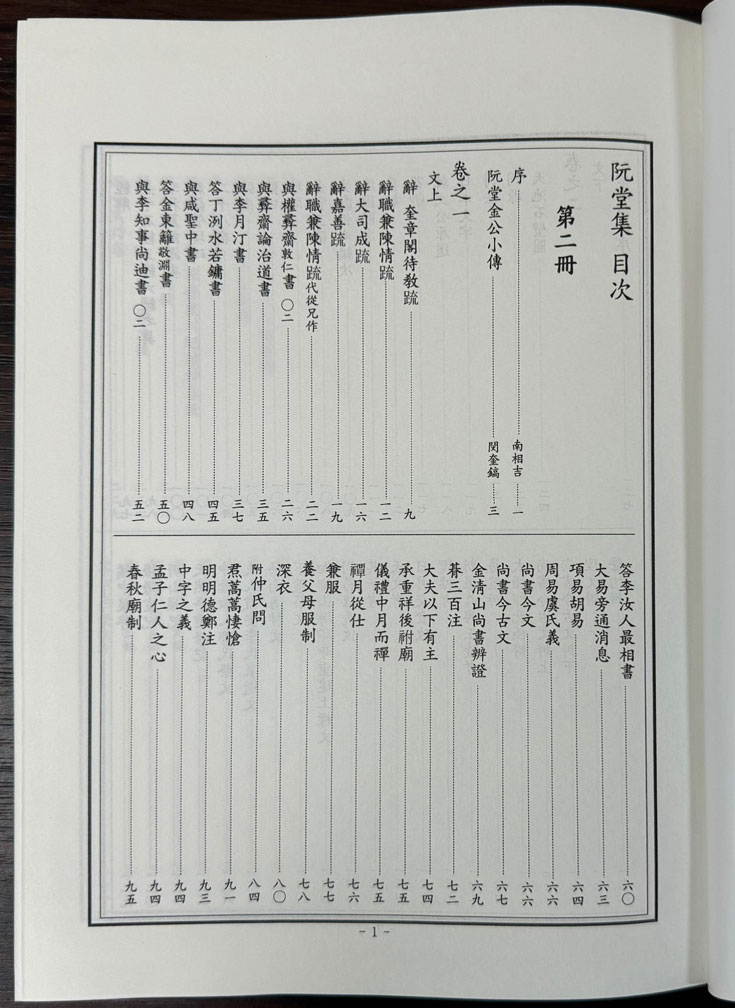 阮堂集 目次
第二冊
序 南相吉 一
阮堂金公小傳 閔奎鎬 三
卷之一
文上
辭 奎章閣待敎䟽 九
辭職兼陳情䟽 一二
辭大司成䟽 一六
辭嘉善䟽 一九
辭職兼陳情䟽代從兄作 二二
與權彛齋敦仁書 〇二 二六
與彛齋論治道書 三五
與李月汀書 三七
答丁洌水若鏞書 四五
與咸聖中書 四八
答金東籬敬淵書 五〇
與李知事尙迪書 〇二 五二
答李汝人最相書 六〇
大易旁通消息 六三
項易胡易 六四
周易虞氏義 六六
尙書今文 六六
尙書今古文 六七
金淸山尙書辨證 六九
朞三百注 七二
大夫以下有主 七四
承重祥後祔廟 七五
儀禮中月而禫 七五
禫月從仕 七六
兼服 七七
養父母服制 七八
深衣 八〇
附仲氏問 八四
焄蒿蒿悽愴 九一
明明德鄭注 九三
中字之義 九四
孟子仁人之心 九四
春秋廟制 九五
- 1 -